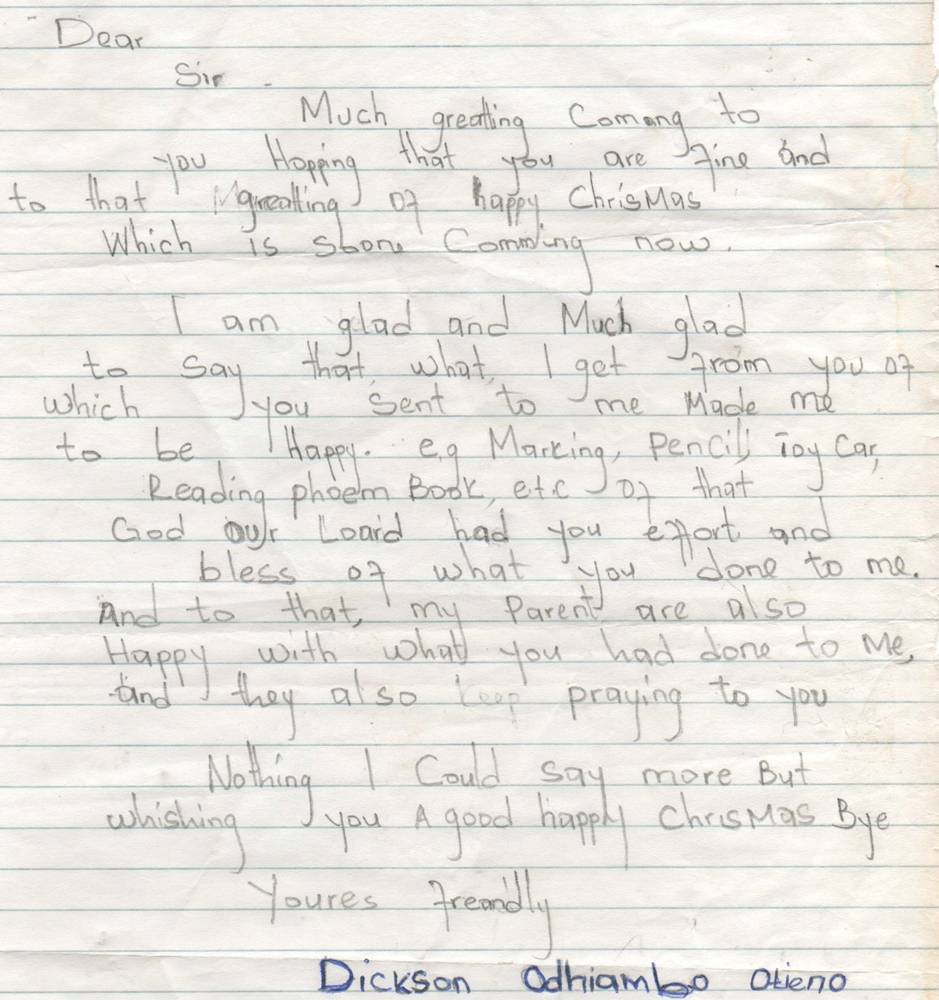 Dear
Sir -
Much greatling Comang to
you Hopping that you are fine and
to that greatling of happy ChrisMas
Which is sbon Comming now.
I am glad and Much glad
to say that, what, I get from you of
which you sent to me Made me
to be Happy. e.g Marking, pencil, Toy Car,
Reading phoem Book, e.t.c of that
God our Loard had you effort, and
bless of what you done to me.
And to that, my Parent are also
Happy with what you had done to Me,
and they also keep praying to you
Nothing I Could say more But
whishing you A good happly ChrisMas Bye
Youres freandly
Dickson Odhiambo Otieno